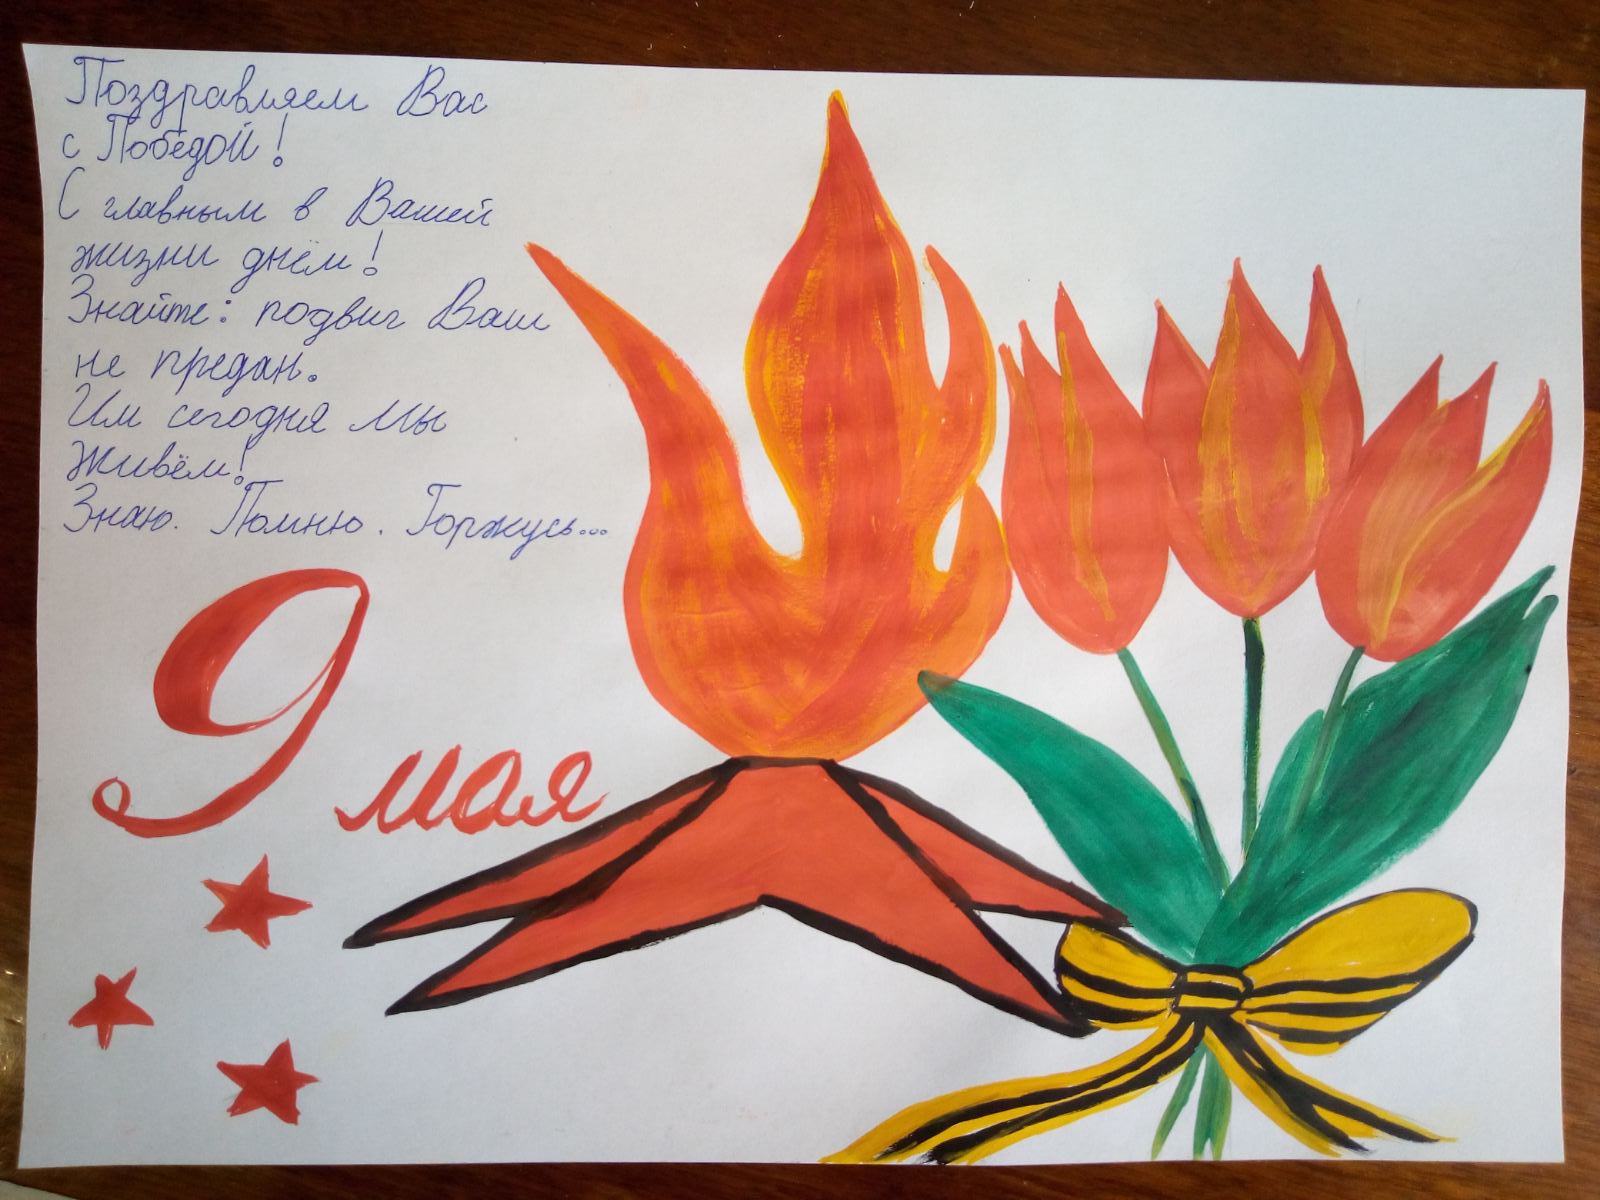 Поздравляем Вас
с Победой!
С главным в Вашей
жизни днём!
Знайте: подвиг Ваш
не предан.
Им сегодня мы
живём!
Знаю. Помню. Горжусь...
9 мая